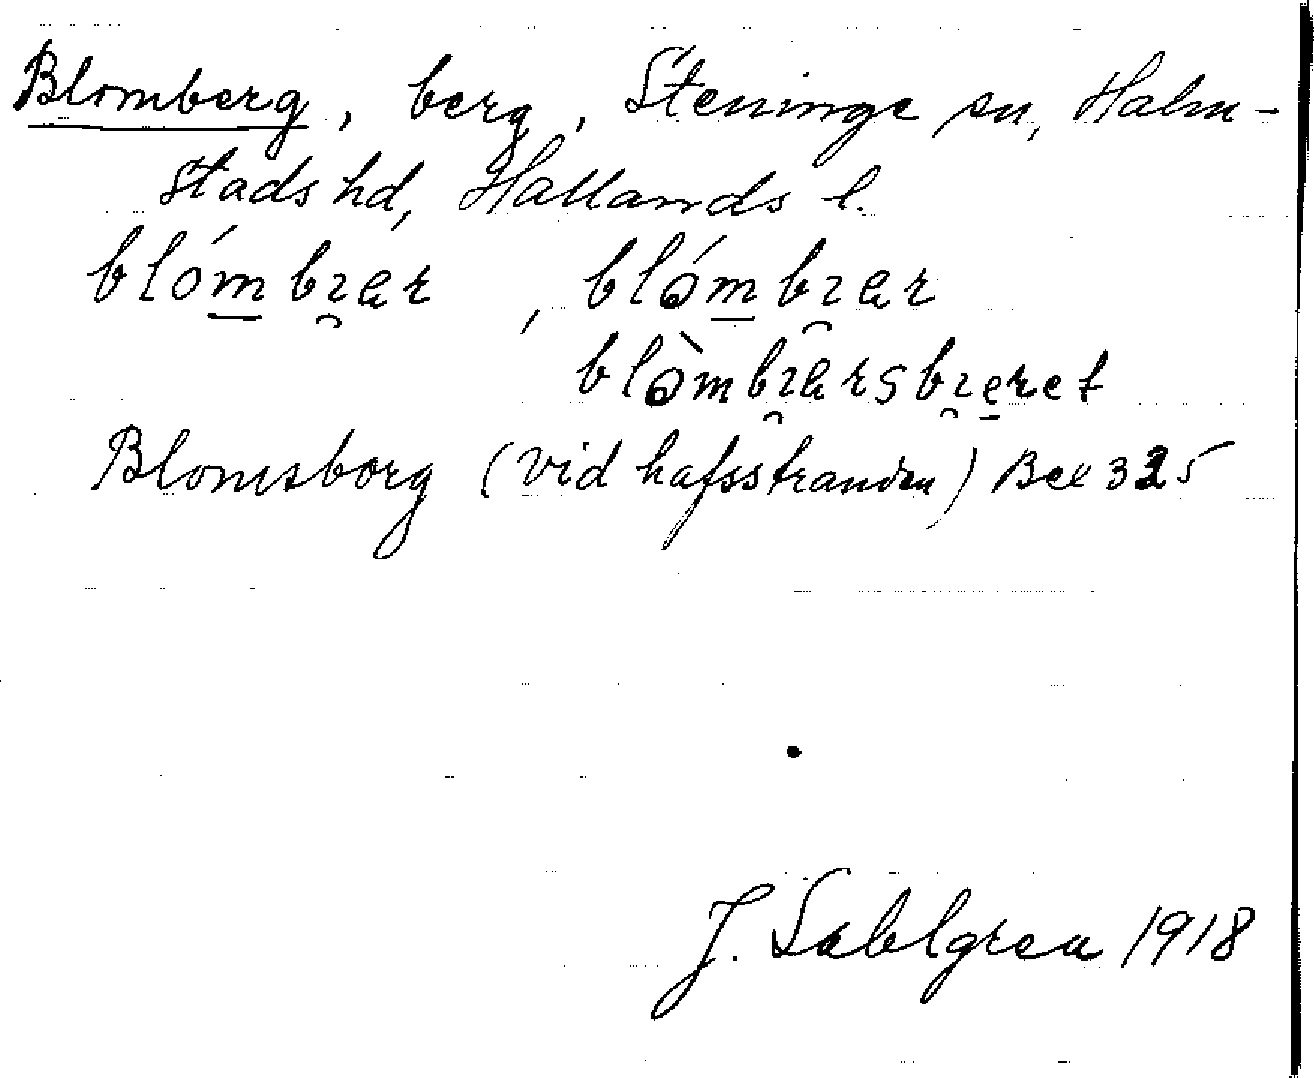 Blomberg, berg, Steninge sn, Halm-
stads hd, Hallands l.
blómbɿær, blómbɿær
blòmbɿærsbɿeret
Blomsborg (vid hafsstranden) Bex 325
J. Sahlgren 1918